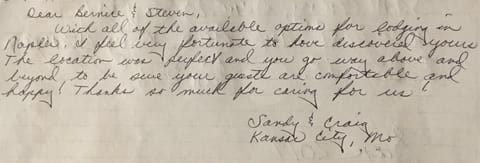 Dear Bernice & Steven,
With all of the available options for lodging in
Naples, I feel very fortunate to have discovered yours
The location was perfect and you go way above and
beyond to be sure your guests are comfortable and
happy! Thanks so much for caring for us!
Sandy & Craig
Kansas City, Mo